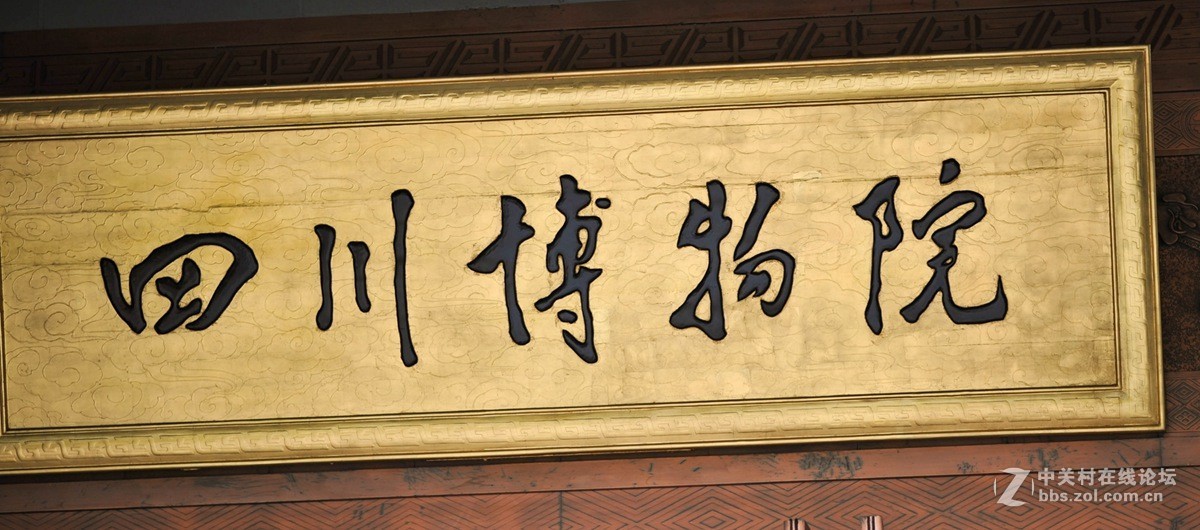 四川博物院
中关村在线论坛
bbs.zol.com.cn